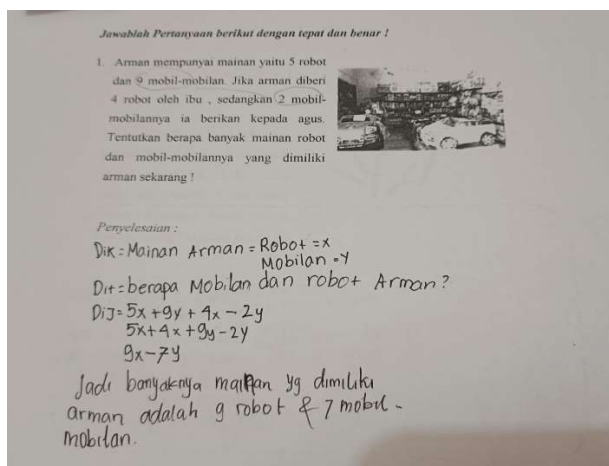 Jawablah Pertanyaan berikut dengan tepat dan benar !
1. Arman mempunyai mainan yaitu 5 robot
dan 9 mobil-mobilan. Jika arman diberi
4 robot oleh ibu , sedangkan 2 mobil-
mobilannya ia berikan kepada agus.
Tentutkan berapa banyak mainan robot
dan mobil-mobilannya yang dimiliki
arman sekarang !
Penyelesaian :
Dik = Mainan Arman = Robot = x
Mobilan = y
Dit = berapa Mobilan dan robot Arman?
Dij = 5x + 9y + 4x - 2y
5x + 4x + 9y - 2y
9x - 7y
Jadi banyaknya mainan yg dimiliki
arman adalah 9 robot & 7 mobil-
mobilan.